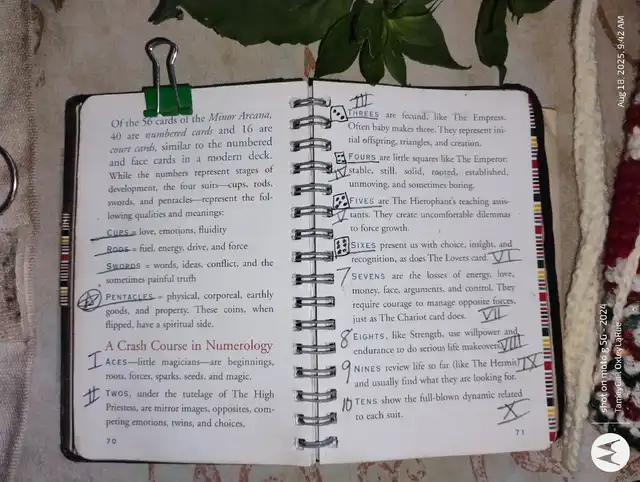 Of the 56 cards of the Minor Arcana,
40 are numbered cards and 16 are
court cards, similar to the numbered
and face cards in a modern deck.
While the numbers represent stages of
development, the four suits—cups, rods,
swords, and pentacles—represent the fol-
lowing qualities and meanings:
CUPS = love, emotions, fluidity
RODS = fuel, energy, drive, and force
SWORDS = words, ideas, conflict, and the
sometimes painful truth
PENTACLES = physical, corporeal, earthly
goods, and property. These coins, when
flipped, have a spiritual side.
A Crash Course in Numerology
I ACES—little magicians—are beginnings,
roots, forces, sparks, seeds, and magic.
II TWOS, under the tutelage of The High
Priestess, are mirror images, opposites, com-
peting emotions, twins, and choices.
70
III
THREES are fecund, like The Empress.
Often baby makes three. They represent ini-
tial offspring, triangles, and creation.
FOURS are little squares like The Emperor:
IV stable, still, solid, rooted, established,
unmoving, and sometimes boring.
FIVES are The Hierophant's teaching assis-
V tants. They create uncomfortable dilemmas
to force growth.
SIXES present us with choice, insight, and
recognition, as does The Lovers card. VI
7 SEVENS are the losses of energy, love,
money, face, arguments, and control. They
require courage to manage opposite forces,
just as The Chariot card does. VII
8 EIGHTS, like Strength, use willpower and
endurance to do serious life makeovers. VIII
9 NINES review life so far (like The Hermit) IX
and usually find what they are looking for.
10 TENS show the full-blown dynamic related
to each suit. X
71
Aug 18, 2025, 9:42 AM
shot on moto g 5G - 2024
TameyGurl OxleyLaRue